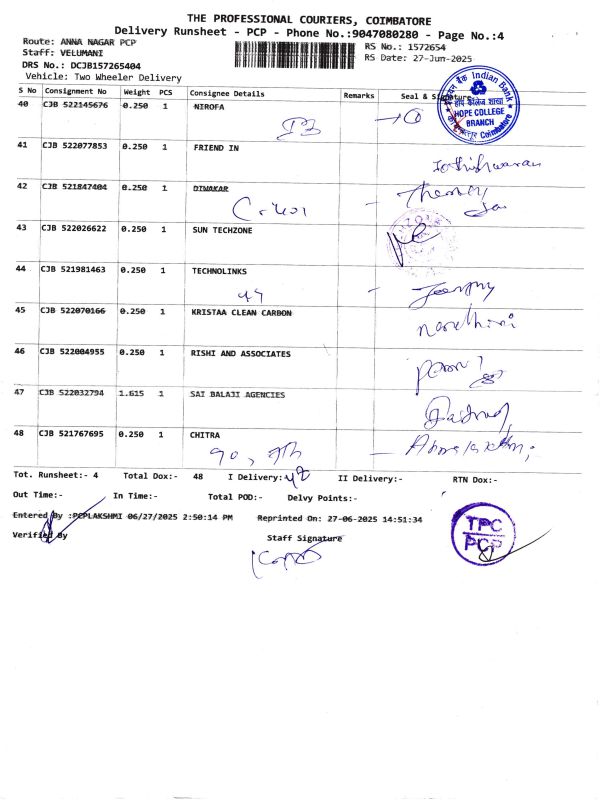 THE PROFESSIONAL COURIERS, COIMBATORE
Delivery Runsheet - PCP - Phone No.:9047080280 - Page No.:4
Route: ANNA NAGAR PCP
Staff: VELUMANI
DRS No.: DCJB157265404
Vehicle: Two Wheeler Delivery
RS No.: 1572654
RS Date: 27-Jun-2025
S No Consignment No Weight PCS Consignee Details Remarks Seal & Signature
40 CJB 522145676 0.250 1 NIROFA
Indian Bank
HOPE COLLEGE
BRANCH
Coimbatore
41 CJB 522077853 0.250 1 FRIEND IN
42 CJB 521847404 0.250 1 DIWAKAR
43 CJB 522026622 0.250 1 SUN TECHZONE
44 CJB 521981463 0.250 1 TECHNOLINKS
47
45 CJB 522070166 0.250 1 KRISTAA CLEAN CARBON
46 CJB 522004955 0.250 1 RISHI AND ASSOCIATES
47 CJB 522032794 1.615 1 SAI BALAJI AGENCIES
48 CJB 521767695 0.250 1 CHITRA
Tot. Runsheet:- 4 Total Dox:- 48 I Delivery:- 48 II Delivery:- RTN Dox:-
Out Time:- In Time:- Total POD:- Delvy Points:-
Entered By :PCPLAKSHMI 06/27/2025 2:50:14 PM Reprinted On: 27-06-2025 14:51:34
Verified By Staff Signature
TPC
PCP